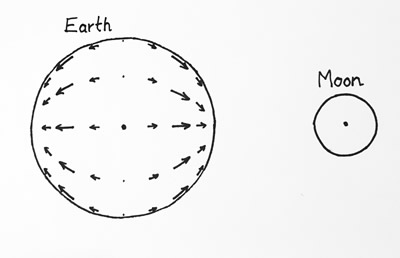 Earth
Moon